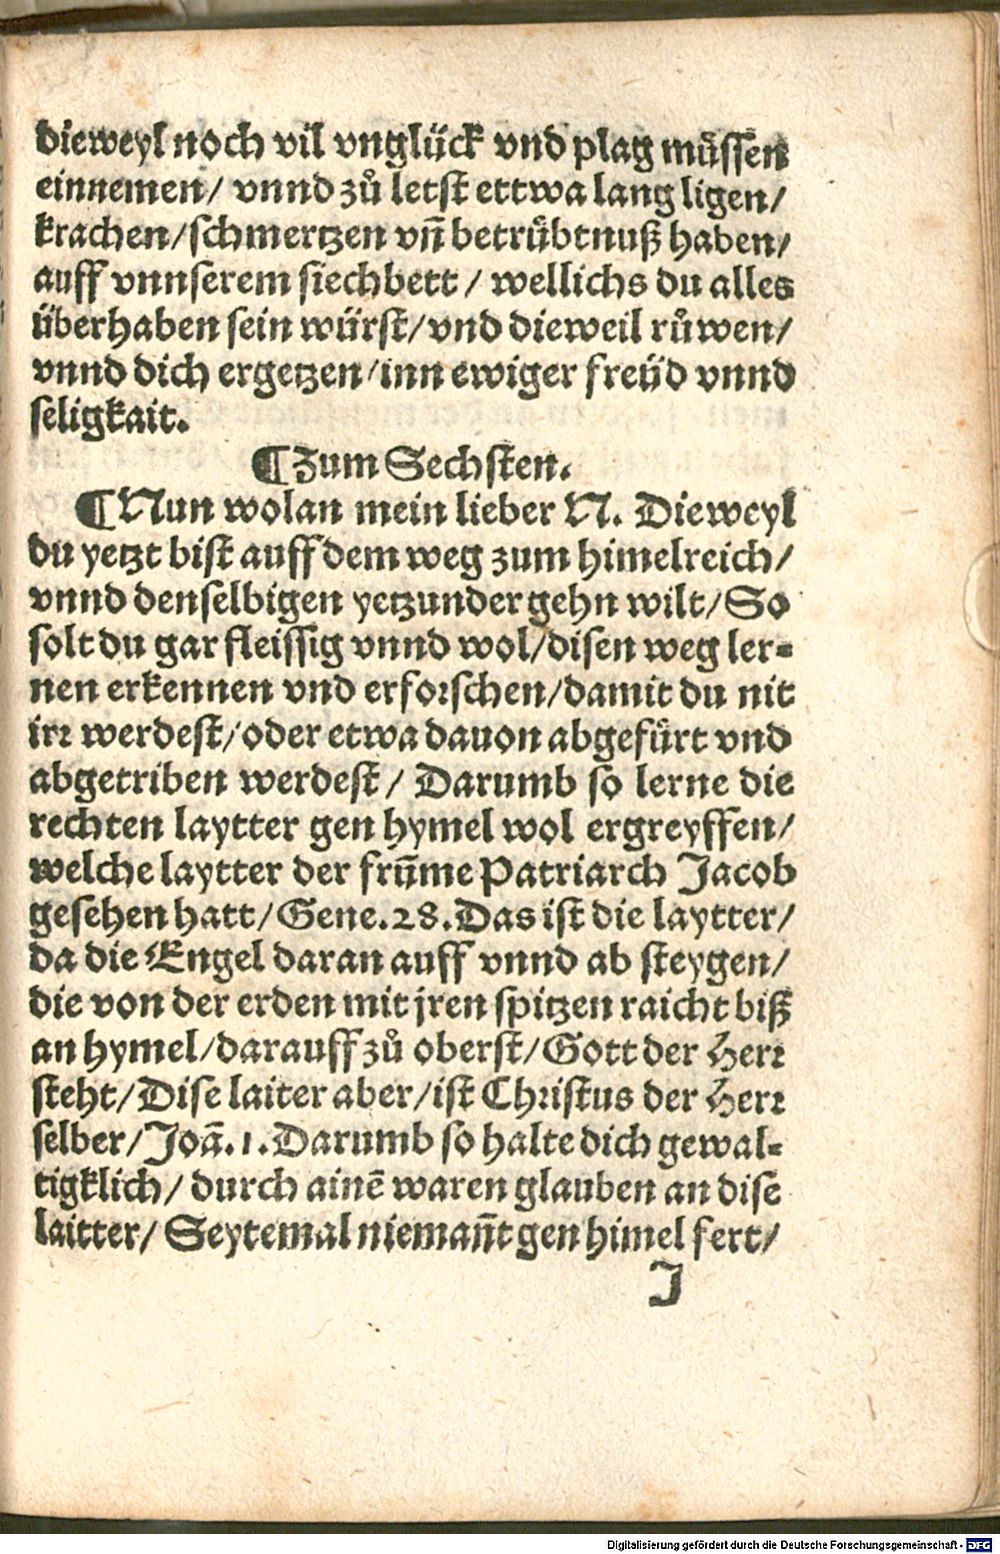 dieweyl noch vil vnglück vnd plag müssen
einnemen/ vnnd zů letst ettwa lang ligen/
krachen/schmertzen vn̄ betrübtnuß haben/
auff vnnserem siechbett / wellichs du alles
überhaben sein würst/vnd dieweil růwen/
vnnd dich ergetzen/inn ewiger freüd vnnd
seligkait.
¶Zum Sechsten.
¶Nun wolan mein lieber N. Dieweyl
du yetzt bist auff dem weg zum himelreich/
vnnd denselbigen yetzunder gehn wilt/So
solt du gar fleissig vnnd wol/disen weg ler⸗
nen erkennen vnd erforschen/damit du nit
irr werdest/oder etwa dauon abgefürt vnd
abgetriben werdest/ Darumb so lerne die
rechten laytter gen hymel wol ergreyffen/
welche laytter der frum̄e Patriarch Jacob
gesehen hatt/Gene.28.Das ist die laytter/
da die Engel daran auff vnnd ab steygen/
die von der erden mit jren spitzen raicht biß
an hymel/darauff zů oberst/Gott der Herr
steht/Dise laiter aber/ist Christus der Herr
selber/Joā.1.Darumb so halte dich gewal⸗
tigklich/ durch ainē waren glauben an dise
laitter/ Seytemal nieman̄t gen himel fert/
J
Digitalisierung gefördert durch die Deutsche Forschungsgemeinschaft - DFG